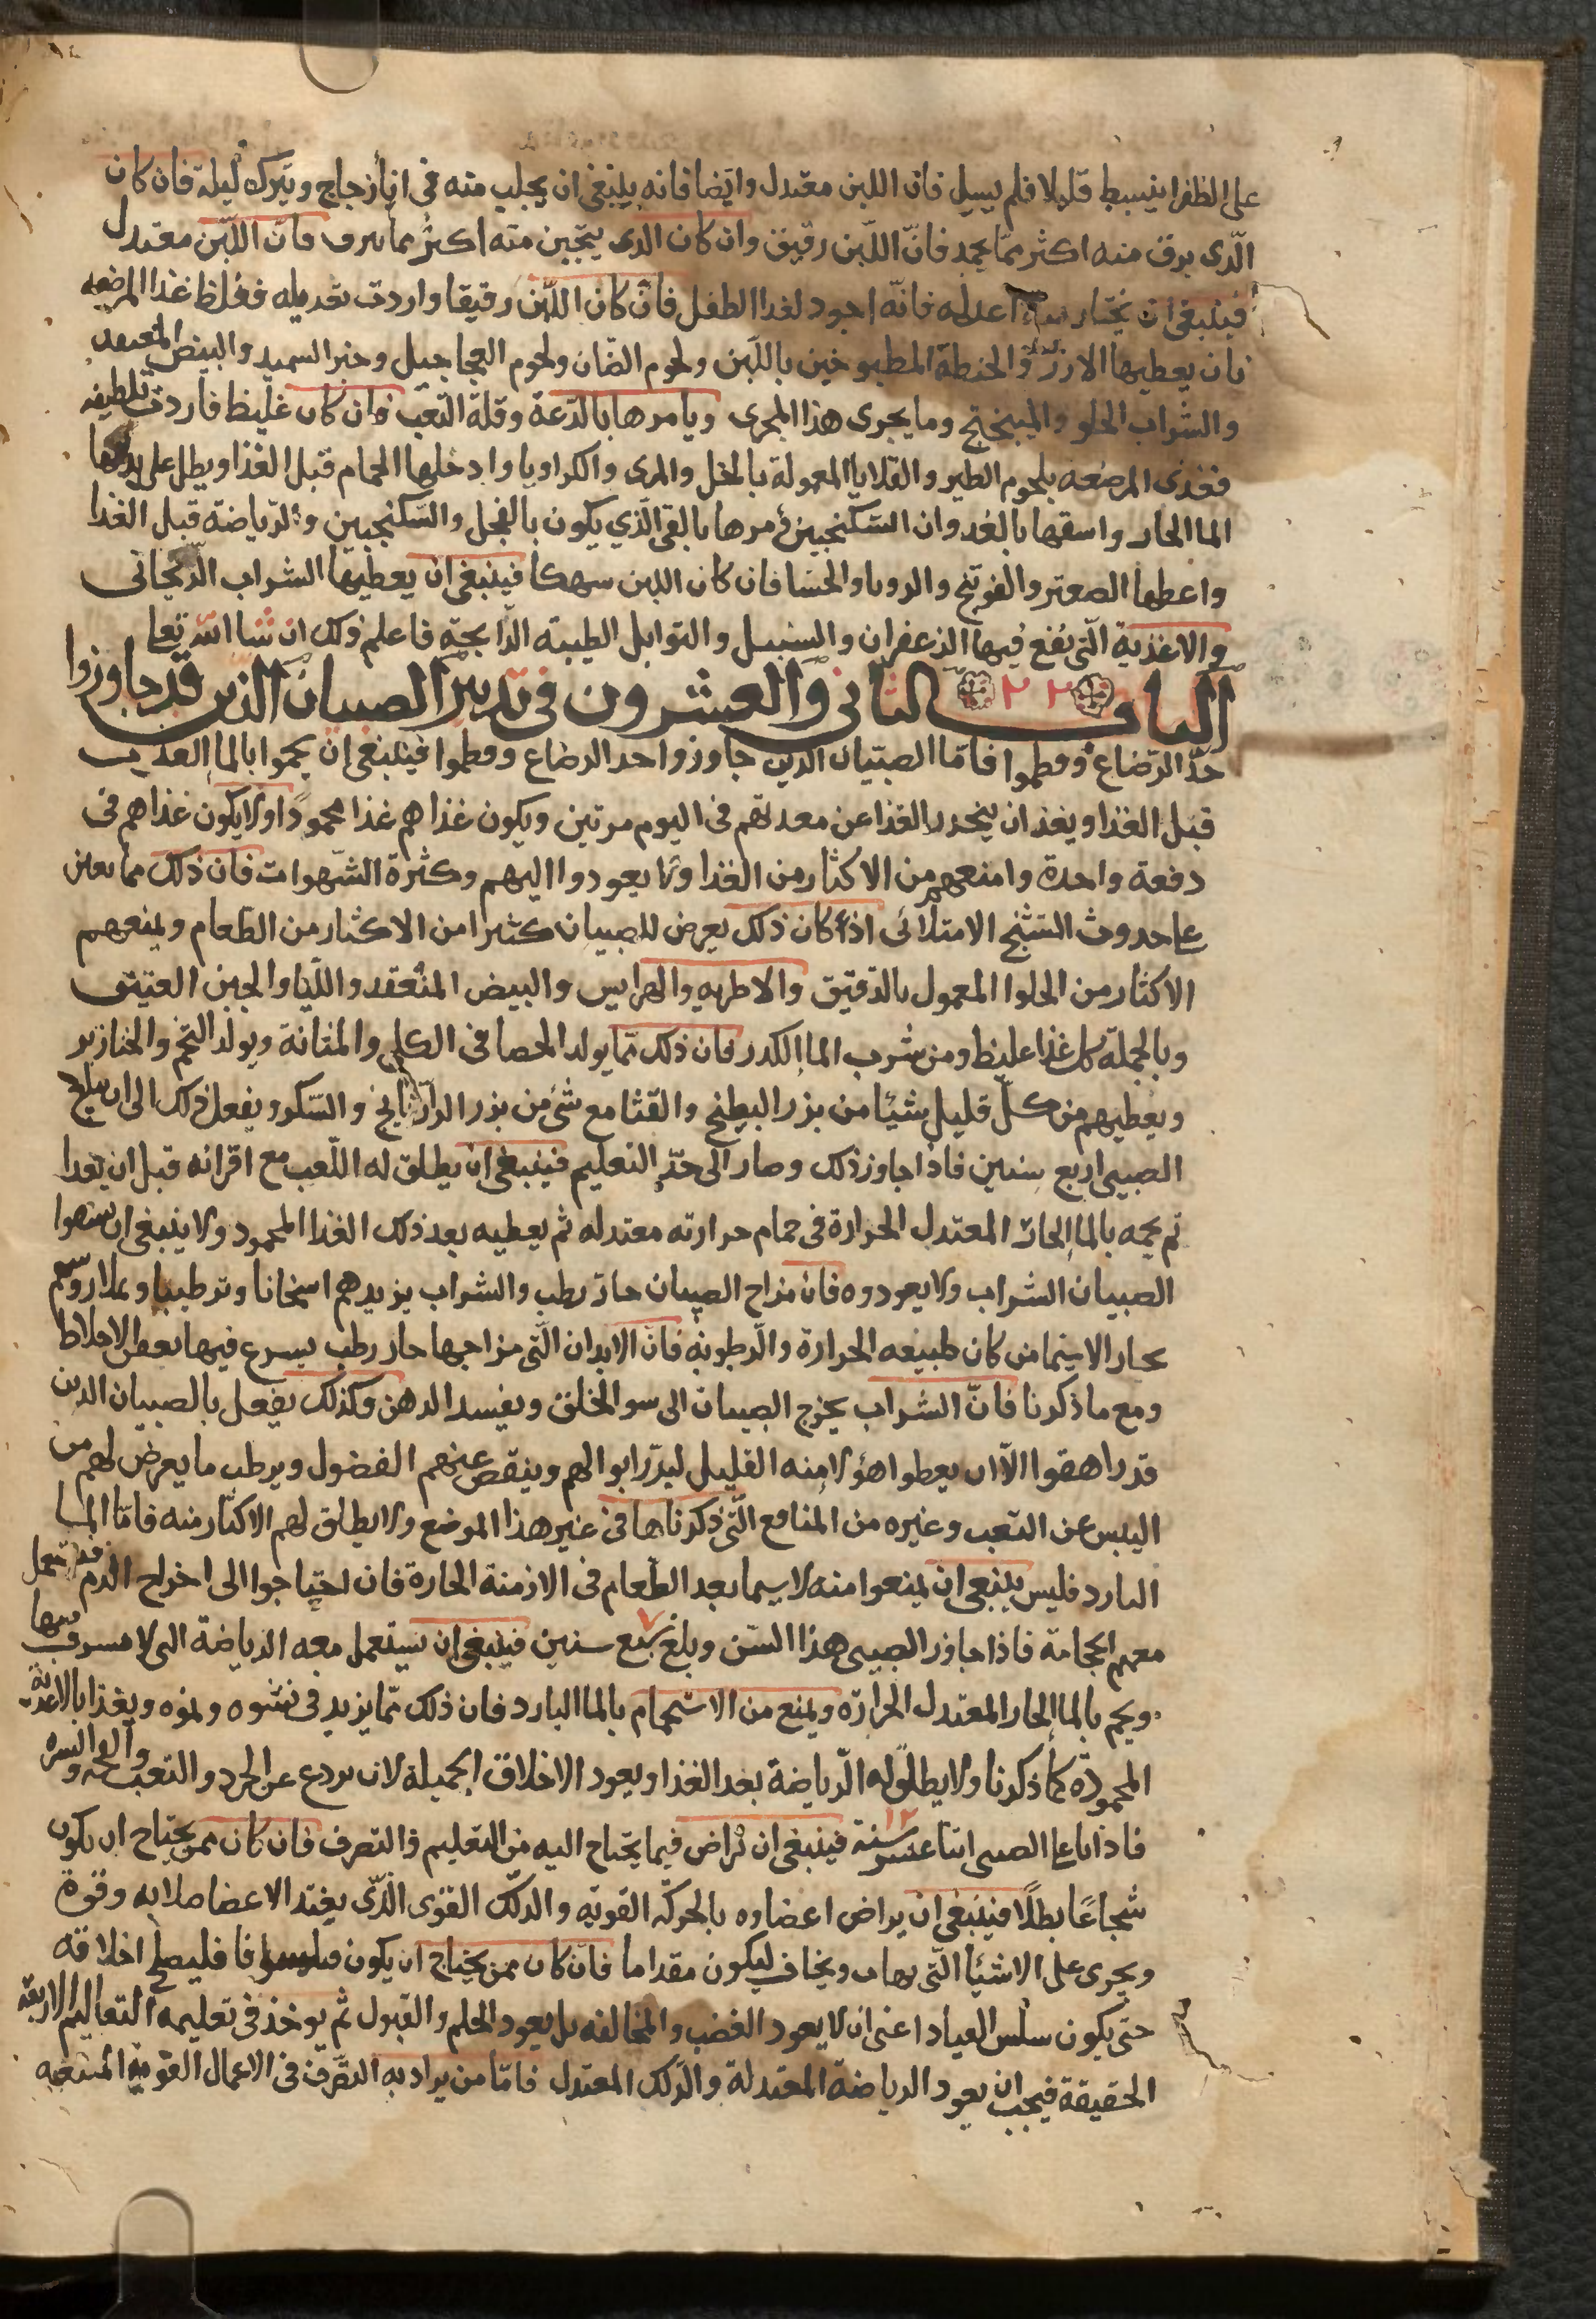 على الظفر ينبسط قليلا فلم يسيل فان اللبن معتدل وايضا فانه ينبغى ان يحلب منه فى اناء زجاج ويترك ليلة فان كان
الّذى يرق منه اكثر مما يجمد فانّ اللّبن رقيق وان كان الذى يتجبن منه اكثر مما يرق فانّ اللّبن معتدل
فينبغى ان يختار اعدله فانّه اجود لغذا الطفل فان كان اللّبن رقيقا واردت تعديله فغلظ غذا المرضعه
بان يعطيها الارز والحنطة المطبوخين باللّبن ولحوم الضّان ولحوم العجاجيل وخبز السميد والبيض المنعقد
والشّراب الحلو والميبختج وما يجرى هذا المجرى ويامرها بالدّعة وقلة التعب وان كان غليظ فاردت تلطيفه
فغذى المرضعه بلحوم الطير والقلايا المعمولة بالخل والمرى والكراويا وادخلها الحمام قبل الغذا ويطل على بدنها
الما الحار واسقها بالغدوان السّكنجبين ومرها بالقى الّذي يكون بالفجل والسّكنجبين والرّياضة قبل الغذا
واعطها الصعتر والفوتنج والحسا فان كان اللبن سهكا فينبغى ان يعطيها الشراب الرّيحانى
والاغذية الّتى يقع فيها الزعفران والسنبل والتوابل الطيبه الرّايحة فاعلم ذلك ان شا الله تعا
الباب ٢٢ الثانى والعشرون فى تدبير الصبيان الّذين قد جاوزوا
حدّ الرّضاع وفطموا فامّا الصّبيان الذين جاوزوا حد الرضاع وفطموا فينبغى ان يحموا بالما العذب
قبل الغذا وبعد ان ينحدر الغذا عن معدتهم فى اليوم مرتين ويكون غذاهم غذا محمودًا ولا يكون غذاهم فى
دفعة واحدة وامنعهم من الاكثار من الغذا ولا يعودوا النهم وكثرة الشّهوات فان ذلك مما يعين
على حدوث التشنج الامتلائى اذا كان ذلك يعرض للصبيان كثيرا من الاكثار من الطعام ويمنعهم
الاكثار من الحلوا المعمول بالدّقيق والاطريه والهرايس والبيض المنعقد واللّبا والجبن العتيق
وبالجملة كل غذا غليظ ومن شرب الما الكدر فان ذلك مما يولد الحصا فى الكلى والمثانة ويولد التخم والخنازير
ويعطيهم من كلّ قليل شيئا من بزر البطيخ والقثا مع شئ من بزر الرازيانج والسّكر ويفعل ذلك الى ان يبلغ
الصبى اربع سنين فاذا جاوز ذلك وصار الى حدّ التعليم فينبغى ان يطلق له اللّعب مع اقرانه قبل ان يغدا
ثم يحمه بالما الحار المعتدل الحرارة فى حمام حرارته معتدله ثم يعطيه بعد ذلك الغذا المحمود ولا ينبغى ان يسقوا
الصبيان الشراب ولا يعودوه فان مزاج الصبيان حار رطب والشراب يزيدهم اسخانا وترطيبا ويملا روسهم
بخار الاسيما من كان طبيعه الحرارة والرّطوبه فان الابدان الّتى مزاجها حار رطب يسرع فيها تعفن الاخلاط
ومع ما ذكرنا فانّ الشراب يخرج الصبيان الى سو الخلق ويفسد الذهن وكذلك يفعل بالصبيان الذين
قد راهقوا الّا ان يعطوا هؤلا منه القليل ليدرّ ابوالهم وينقص عنهم الفضول ويرطب ما يعرض لهم من
اليبس عن التعب وغيره من المنافع الّتى ذكرناها فى غير هذا الموضع ولا يطلق لهم الاكثار منه فامّا الما
البارد فليس ينبغى ان يمنعوا منه لاسيما بعد الطّعام فى الازمنة الحارة فان احتاجوا الى اخراج الدم فتستعمل
معهم الحجامة فاذا جاوز الصبى هذا السّن وبلغ سبع ٧ سنين فينبغى ان يستعمل معه الرياضة التى لا مسرف فيها
ويحم بالما الحار المعتدل الحرارة ويمنع من الاستحمام بالما البارد فان ذلك مما يزيد فى نشوه ونموه ويغذا بالاغذية
المحمودة كما ذكرنا ولا يطلق له الرّياضة بعد الغذا ويعود الاخلاق الجميلة لان يردع عن الحرد والتعب والشره
فاذا بلغ الصبى اثنا عشر ١٢ سنة فينبغى ان يراض فيما يحتاج اليه من التعليم والتصرف فان كان ممن يحتاج ان يكون
شجاعًا بطلًا فينبغى ان يراض اعضاوه بالحركه القويه والدلك القوى الّذى يفيد الاعضا صلابه وقوة
ويجرى على الاشيا الّتى يهاب ويخاف ليكون مقداما فان كان ممن يحتاج ان يكون فيلسوفا فليصلح اخلاقه
حتى يكون سلس القياد اعنى ان لا يعود الغضب والمخالفه بل يعود الحلم والقبول ثم يوخذ فى تعليمه التعاليم الاربعة
الحقيقة فيجب ان يعود الرياضة المعتدلة والدّلك المعتدل فامّا من يراد به التصرّف فى الاعمال القوية المتعبه